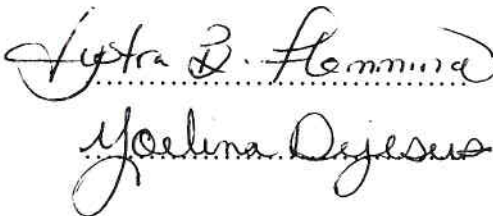 Lystra B. Flemming
Yoelina Dejesus